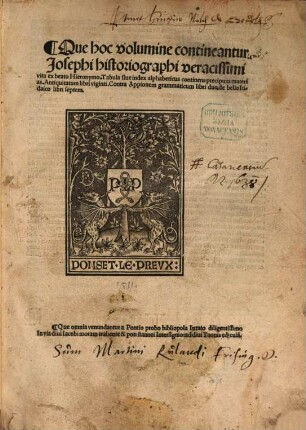 ¶Que hoc volumine contineantur.
Josephi historiographi veracissimi
vita ex beato Hieronymo. Tabula siue index alphabeticus continens precipuas materi
as. Antiquitatum libri viginti. Contra Appionem grammaticum libri duo. de bello Iu
daico libri septem.
BIBLIOTHECA
REGIA
MONACENSIS
PONSET·LE·PREUX:
1511.
¶Que omnia venundantur a Poncio probo bibliopola Iurato diligentissimo
In via diui Iacobi moram trahente &
Sum Martini Rulandi Frising. D.